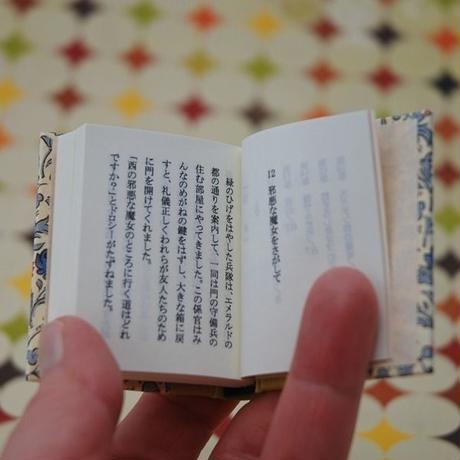 12　邪悪な魔女をさがして
緑のひげをはやした兵隊は、エメラルドの
都の通りを案内して、一同は門の守備兵の
住む部屋にやってきました。この係官はみ
んなのめがねの鍵をはずし、大きな箱に戻
すと、礼儀正しくわれらが友人たちのため
に門を開けてくれました。
「西の邪悪な魔女のところに行く道はどれ
ですか？」とドロシーがたずねました。